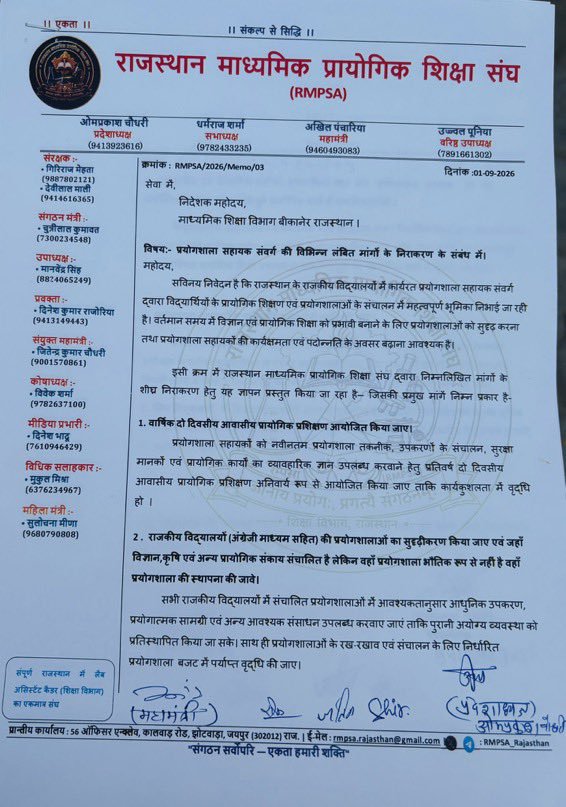 ।। एकता ।।
।। संकल्प से सिद्धि ।।
राजस्थान माध्यमिक प्रायोगिक शिक्षा संघ
(RMPSA)
ओमप्रकाश चौधरी
प्रदेशाध्यक्ष
(9413923616)
धर्मराज शर्मा
सभाध्यक्ष
(9782433235)
अखिल पंचारिया
महामंत्री
(9460493083)
उज्ज्वल पूनिया
वरिष्ठ उपाध्यक्ष
(7891661302)
संरक्षक :-
• गिरिराज मेहता
(9887802121)
• देवीलाल माली
(9414616365)
संगठन मंत्री :-
• चुत्रीलाल कुमावत
(7300234548)
उपाध्यक्ष :-
• मानवेन्द्र सिंह
(8824065249)
प्रवक्ता :-
• दिनेश कुमार राजोरिया
(9413149443)
संयुक्त महामंत्री :-
• जितेन्द्र कुमार चौधरी
(9001570861)
कोषाध्यक्ष :-
• विवेक शर्मा
(9782637100)
मीडिया प्रभारी :-
• दिनेश भादू
(7610946429)
विधिक सलाहकार :-
• मुकुल मिश्रा
(6376234967)
महिला मंत्री :-
• सुलोचना मीणा
(9680790808)
संपूर्ण राजस्थान में लैब
असिस्टेंट कैडर (शिक्षा विभाग)
का एकमात्र संघ
क्रमांक : RMPSA/2026/Memo/03
दिनांक :01-09-2026
सेवा में,
निदेशक महोदय,
माध्यमिक शिक्षा विभाग बीकानेर राजस्थान ।
विषय:- प्रयोगशाला सहायक संवर्ग की विभिन्न लंबित मांगों के निराकरण के संबंध में।
महोदय,
सविनय निवेदन है कि राजस्थान के राजकीय विद्यालयों में कार्यरत प्रयोगशाला सहायक संवर्ग
द्वारा विद्यार्थियों के प्रायोगिक शिक्षण एवं प्रयोगशालाओं के संचालन में महत्वपूर्ण भूमिका निभाई जा रही
है। वर्तमान समय में विज्ञान एवं प्रायोगिक शिक्षा को प्रभावी बनाने के लिए प्रयोगशालाओं को सुदृढ़ करना
तथा प्रयोगशाला सहायकों की कार्यक्षमता एवं पदोन्नति के अवसर बढ़ाना आवश्यक है।
इसी क्रम में राजस्थान माध्यमिक प्रायोगिक शिक्षा संघ द्वारा निम्नलिखित मांगों के
शीघ्र निराकरण हेतु यह ज्ञापन प्रस्तुत किया जा रहा है– जिसकी प्रमुख मांगें निम्न प्रकार है-
1. वार्षिक दो दिवसीय आवासीय प्रायोगिक प्रशिक्षण आयोजित किया जाए।
प्रयोगशाला सहायकों को नवीनतम प्रयोगशाला तकनीक, उपकरणों के संचालन, सुरक्षा
मानकों एवं प्रायोगिक कार्यों का व्यावहारिक ज्ञान उपलब्ध करवाने हेतु प्रतिवर्ष दो दिवसीय
आवासीय प्रायोगिक प्रशिक्षण अनिवार्य रूप से आयोजित किया जाए ताकि कार्यकुशलता में वृद्धि
हो ।
2 . राजकीय विद्यालयों (अंग्रेजी माध्यम सहित) की प्रयोगशालाओं का सुदृढ़ीकरण किया जाए एवं जहाँ
विज्ञान,कृषि एवं अन्य प्रायोगिक संकाय संचालित है लेकिन वहाँ प्रयोगशाला भौतिक रूप से नहीं है वहाँ
प्रयोगशाला की स्थापना की जावे।
सभी राजकीय विद्यालयों में संचालित प्रयोगशालाओं में आवश्यकतानुसार आधुनिक उपकरण,
प्रयोगात्मक सामग्री एवं अन्य आवश्यक संसाधन उपलब्ध करवाए जाएं ताकि पुरानी अयोग्य व्यवस्था को
प्रतिस्थापित किया जा सके। साथ ही प्रयोगशालाओं के रख-रखाव एवं संचालन के लिए निर्धारित
प्रयोगशाला बजट में पर्याप्त वृद्धि की जाए।
शिक्षा विभाग, राजस्थान
(महामंत्री)
(प्रदेशाध्यक्ष)
प्रान्तीय कार्यालय : 56 ऑफिसर एन्क्लेव, कालवाड़ रोड, झोटवाड़ा, जयपुर (302012) राज. | ई-मेल : rmpsa.rajasthan@gmail.com
: RMPSA_Rajasthan
"संगठन सर्वोपरि — एकता हमारी शक्ति"